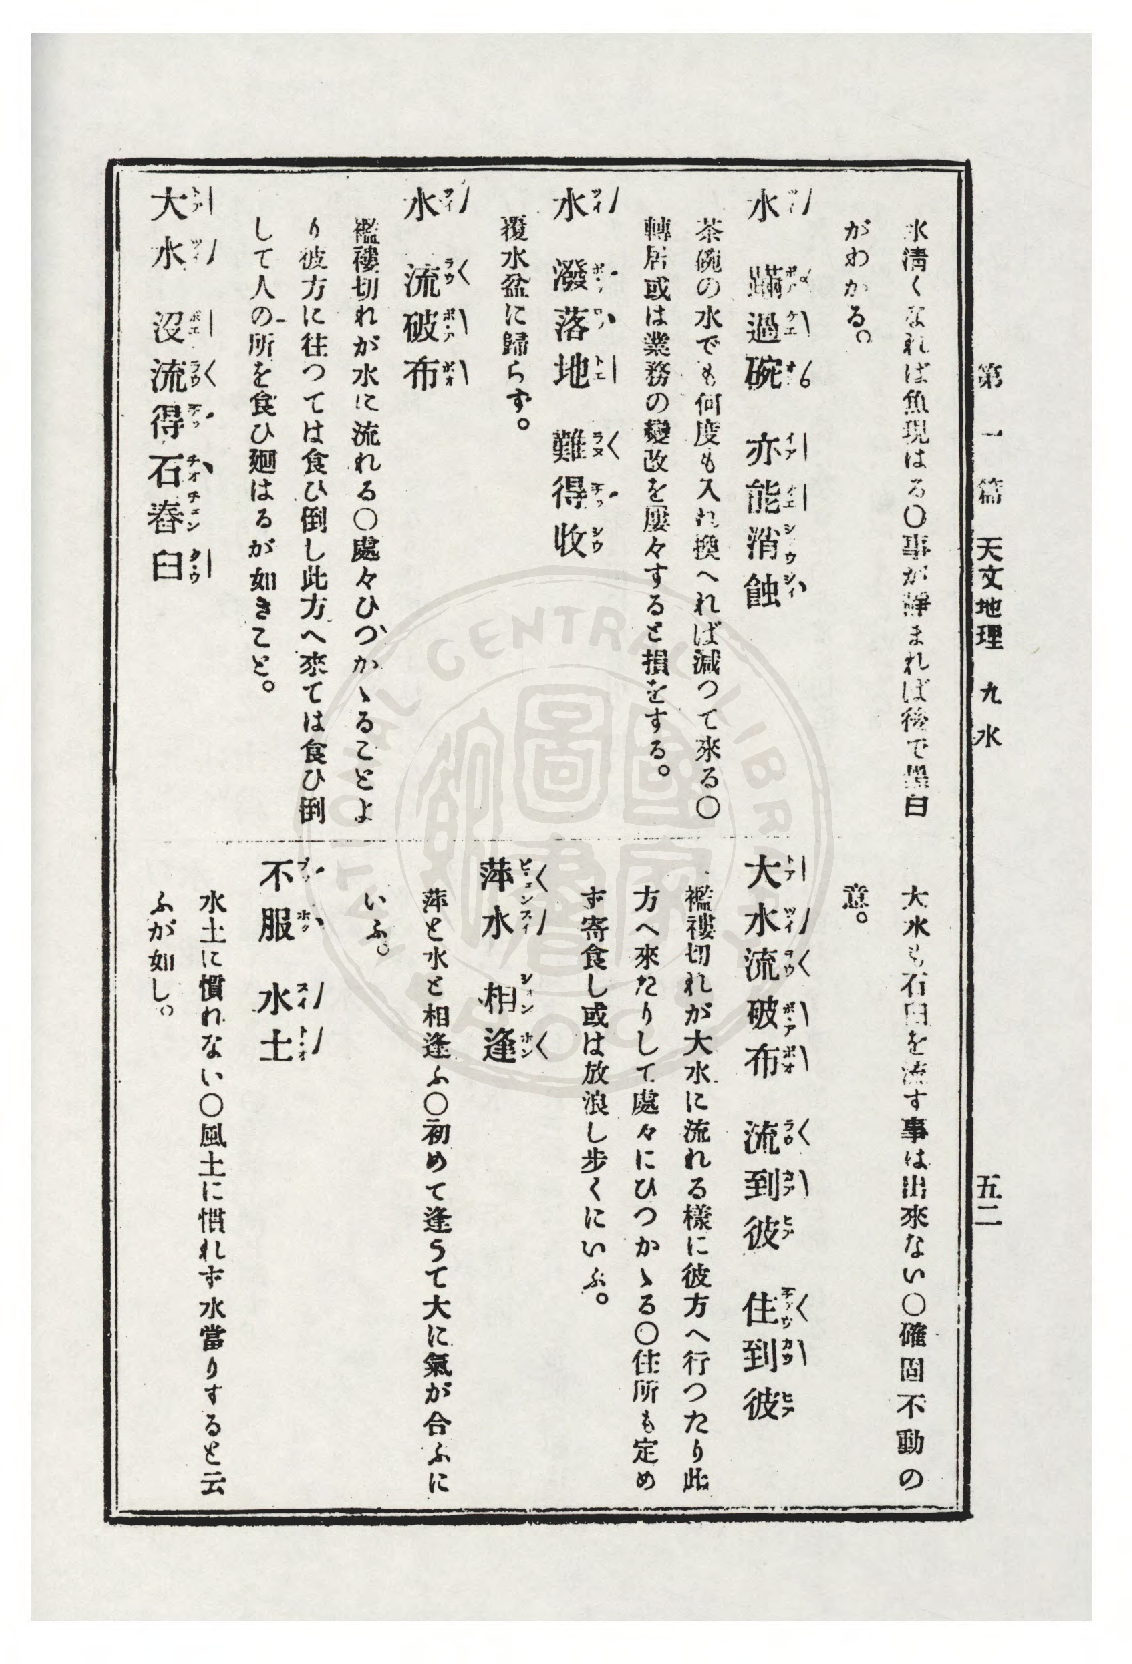 第一篇 天文地理 九 水
五二
水清くなれば魚現はる〇事が靜まれば後で黑白
がわかる。
水蹣過碗亦能消蝕
茶碗の水でも何度も入れ換へれば減つて來る〇
轉居或は業務の變改を屢々すると損をする。
水潑落地難得收
覆水盆に歸らず。
水流破布
襤褸切れが水に流れる〇處々ひつかゝることよ
り彼方に往つては食ひ倒し此方へ來ては食ひ倒
して人の所を食ひ廻はるが如きこと。
大水沒流得石舂臼
大水も石臼を流す事は出來ない〇確固不動の
意。
大水流破布流到彼住到彼
襤褸切れが大水に流れる樣に彼方へ行つたり此
方へ來たりして處々にひつかゝる〇住所も定め
ず寄食し或は放浪し步くにいふ。
萍水相逢
萍と水と相逢ふ〇初めて逢うて大に氣が合ふに
いふ。
不服水土
水土に慣れない〇風土に慣れず水當りすると云
ふが如し。
NATIONAL CENTRAL LIBRARY